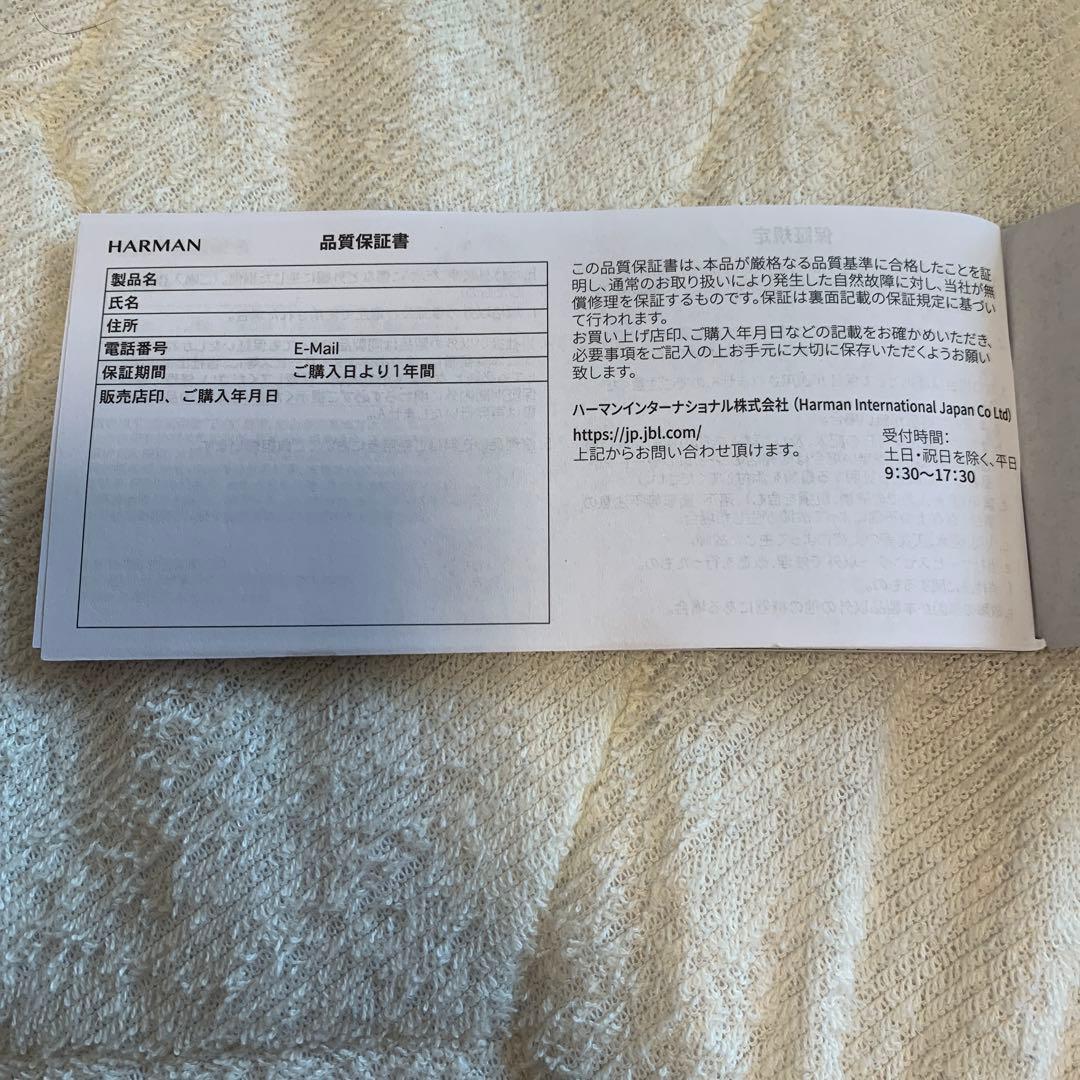 HARMAN 品質保証書
製品名
氏名
住所
電話番号 E-Mail
保証期間 ご購入日より1年間
販売店印、ご購入年月日
この品質保証書は、本品が厳格なる品質基準に合格したことを証
明し、通常のお取り扱いにより発生した自然故障に対し、当社が無
償修理を保証するものです。保証は裏面記載の保証規定に基づい
て行われます。
お買い上げ店印、ご購入年月日などの記載をお確かめいただき、
必要事項をご記入の上お手元に大切に保存いただくようお願い
致します。
ハーマンインターナショナル株式会社 (Harman International Japan Co Ltd)
https://jp.jbl.com/
上記からお問い合わせ頂けます。
受付時間:
土日・祝日を除く、平日
9:30〜17:30